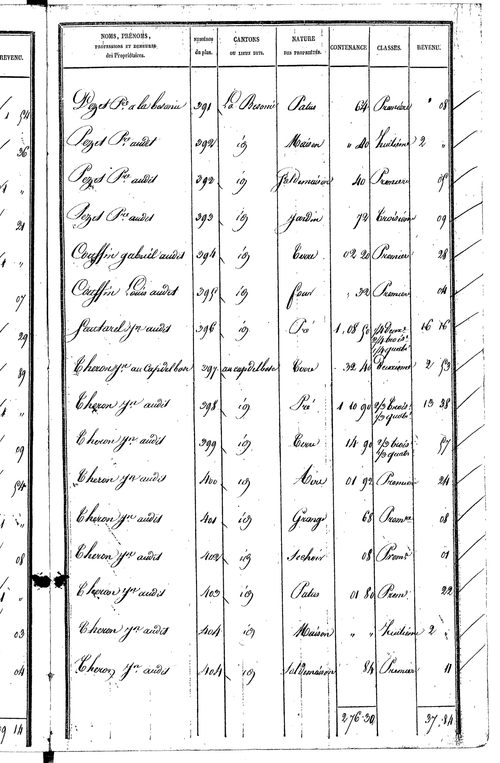 REVENU.
NOMS, PRÉNOMS, PROFESSIONS ET DEMEURES des Propriétaires. NUMÉROS du plan. CANTONS OU LIEUX DITS. NATURE DES PROPRIÉTÉS. CONTENANCE. CLASSES. REVENU.
Pezet Pre a la besonie 391 La Besonie Patus 64 Premiere " 08
Pezet Pre audit 392 id Maison " 40 huitième 2 "
Pezet Pre audit 392 id Sol de maison 40 Premiere 05
Pezet Pre audit 393 id Jardin 72 troisième 09
Couffin gabriel audit 394 id Terre 02 20 Premier 28
Couffin Louis audit 395 id four " 32 Premier 04
Jn audit 396 id Pré 1 08 50 16 16
Theron Jn au Cap del bos 397 au cap del bos Terre 32 40 Deuxieme 2 53
Theron Jn audit 398 id Pré 1 10 90 2/3 trois 1/3 quatr 13 38
Theron Jn audit 399 id Terre 14 90 2/3 trois 1/3 quatr 57
Theron Jn audit 400 id 01 92 Premier 24
Theron Jn audit 401 id Grange 68 Premre 08
Theron Jn audit 402 id Sechoir 08 Premre 01
Theron Jn audit 403 id Patus 01 80 Prem. 22
Theron Jn audit 404 id Maison " " huitieme 2 "
Theron Jn audit 404 id Sol de maison 84 Premier 11
276 30 37 84